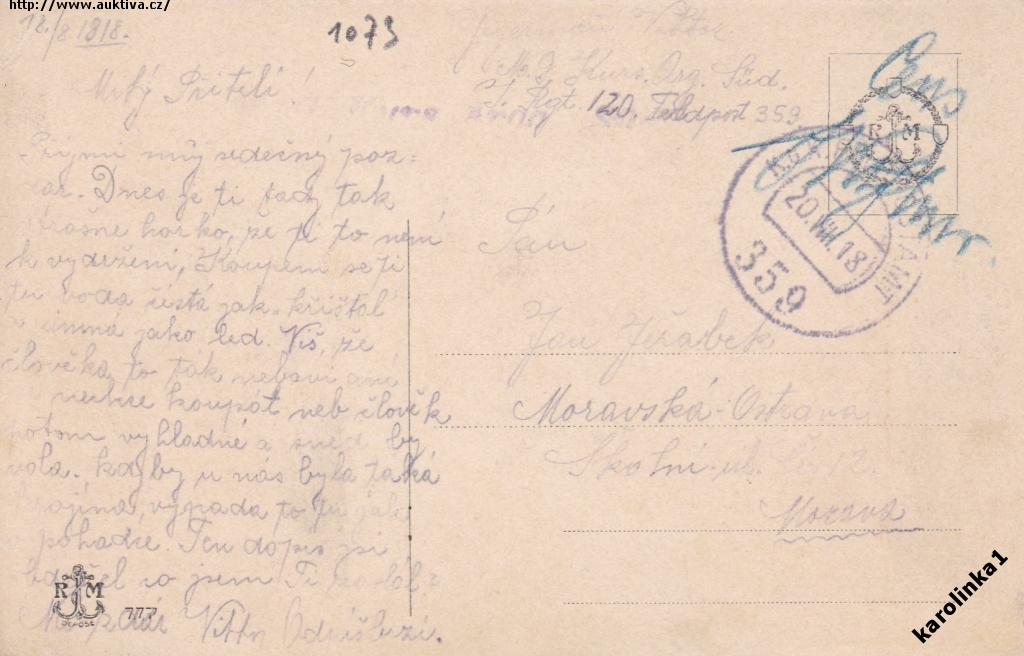 http://www.auktiva.cz/
12./8 1818.
1073
Milý Příteli!
Přijmi můj srdečný poz=
dar. Dnes je ti tady tak
strašne horko, že ti to není
k vydržení. Koupem se ti
tu voda čistá jak křištál
a zimná jako led. Viš, že
člověka to ták nebaví ani
nechce koupát neb člověk
potom vyhladné a sned by
vola. kdyby u nas byla taká
krajina, vypada to tu jak
v pohadce. Ten dopis jsi
co jsem Ti
Viktor Odpiš brzi.
R M
DEPOSE
777
Viktor
Kurs. Org. Süd.
Rgt. 120, Feldpost 359
R M
20.VIII.18
359
Pán
Jan Jeřábek
Moravská-Ostrava
Školní ul. čís 12.
Morava
karolinka1